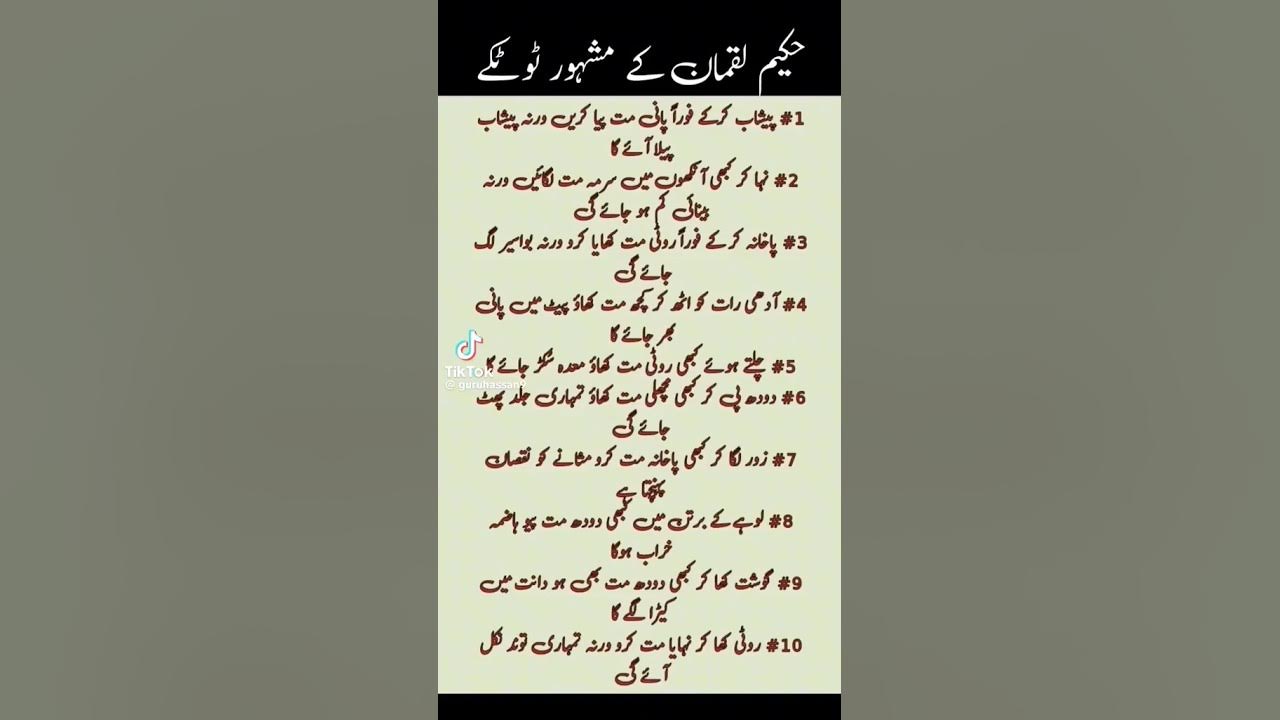 حکیم لقمان کے مشہور ٹوٹکے
#1 پیشاب کرکے فوراً پانی مت پیا کریں ورنہ پیشاب
پیلا آئے گا
#2 نہا کر کبھی آنکھوں میں سرمہ مت لگائیں ورنہ
بینائی کم ہو جائے گی
#3 پاخانہ کرکے فوراً روٹی مت کھایا کرو ورنہ بواسیر لگ
جائے گی
#4 آدھی رات کو اٹھ کر کچھ مت کھاؤ پیٹ میں پانی
بھر جائے گا
#5 چلتے ہوئے کبھی روٹی مت کھاؤ معدہ سکڑ جائے گا
TikTok
@guruhassan9
#6 دودھ پی کر کبھی مچھلی مت کھاؤ تمہاری جلد پھٹ
جائے گی
#7 زور لگا کر کبھی پاخانہ مت کرو مثانے کو نقصان
پہنچتا ہے
#8 لوہے کے برتن میں کبھی دودھ مت پیو ہاضمہ
خراب ہوگا
#9 گوشت کھا کر کبھی دودھ مت بھی ہو دانت میں
کیڑا لگے گا
#10 روٹی کھا کر نہایا مت کرو ورنہ تمہاری توند نکل
آئے گی